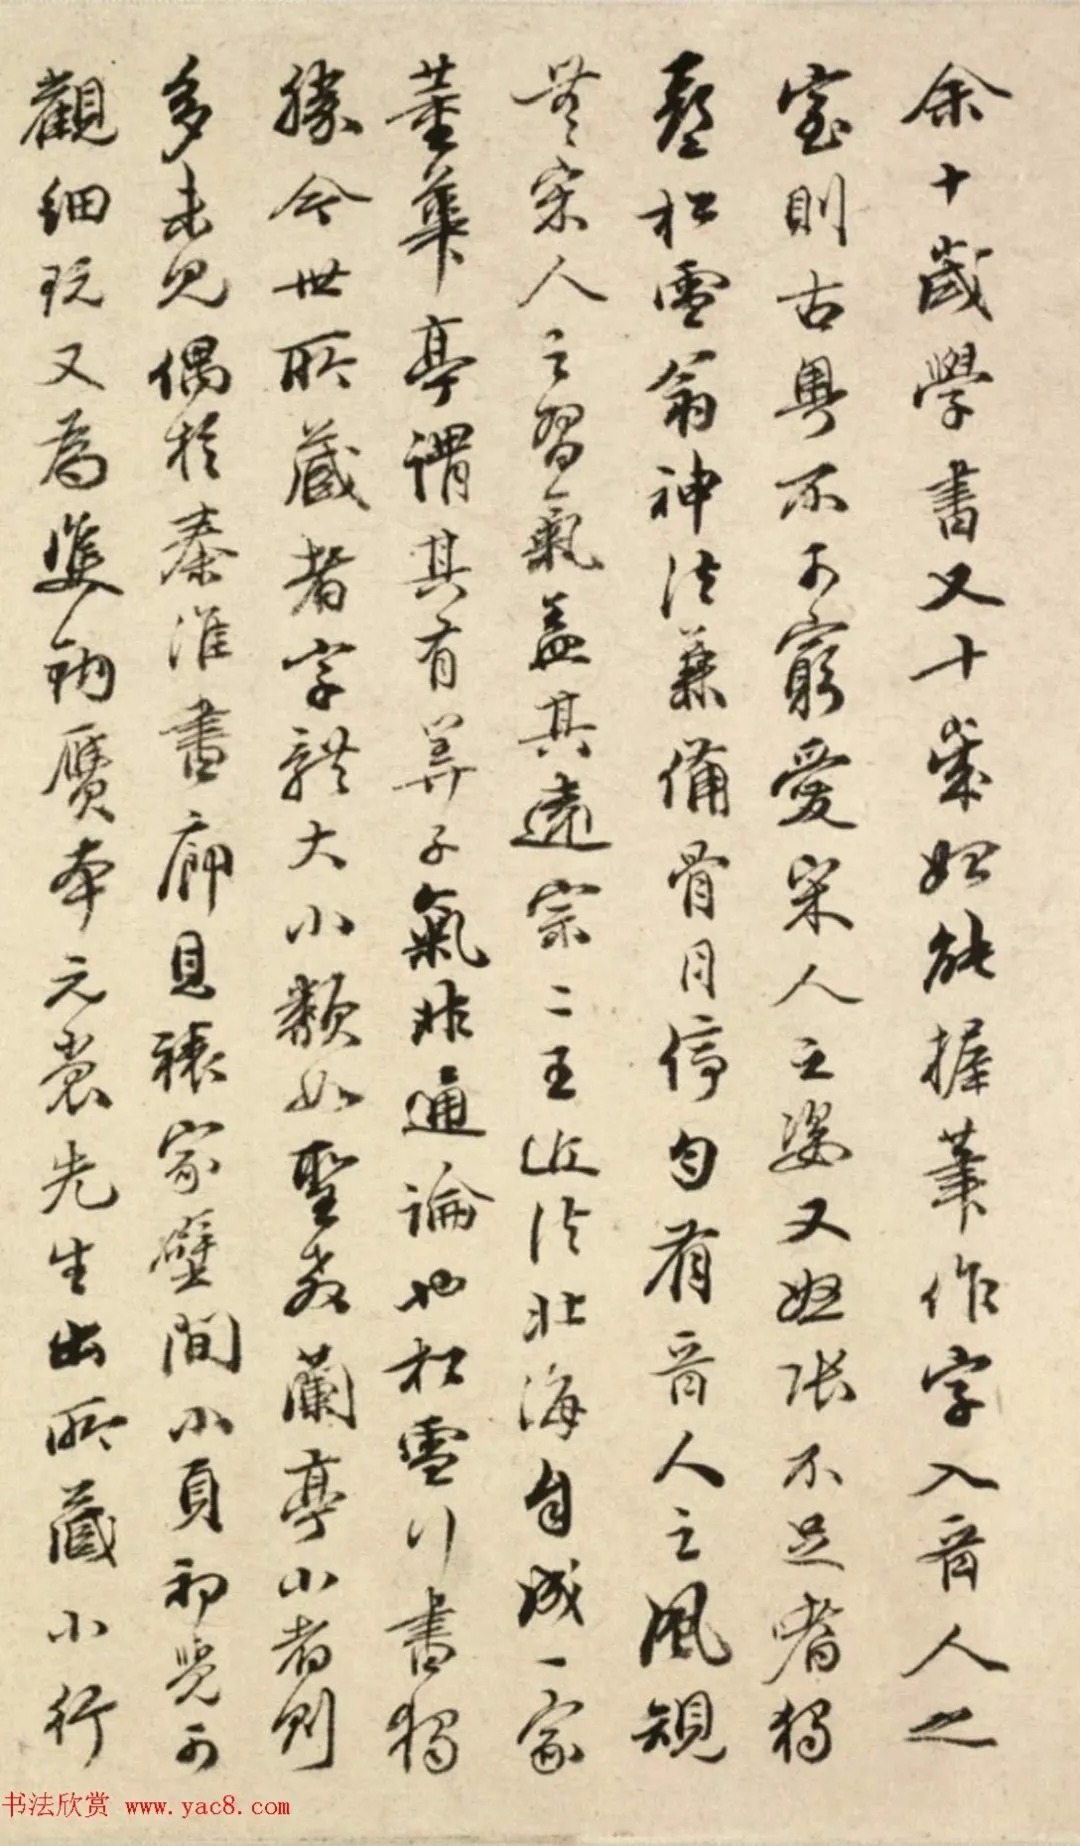 余十歲學書又十歲始能握筆作字入晉人之
室則古奧不可窮愛宋人之姿又怒張不足嗜獨
趙松雪翁神清兼備骨肉停勻有晉人之風規
無宋人之習氣蓋其遠宗二王近法北海自成一家
董華亭謂其有算子氣非通論也松雪行書獨
勝今世所藏者字體大小類如聖教蘭亭小者則
多未見偶於秦淮書廊見裱家壁間小頁初覺可
觀細玩又為雙鉤贗本元裳先生出所藏小行
书法欣赏 www.yac8.com